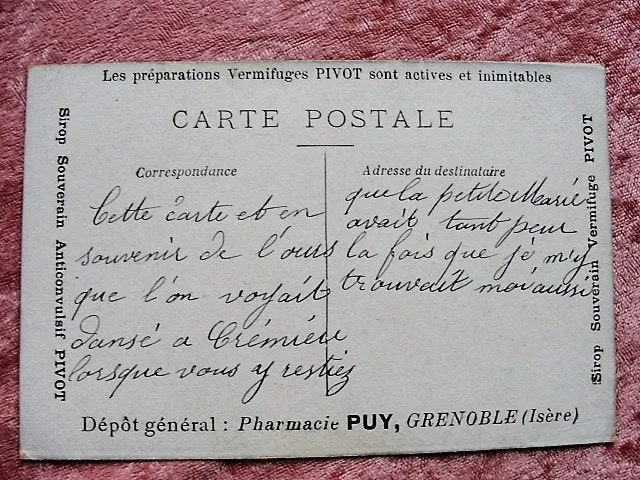 Les préparations Vermifuges PIVOT sont actives et inimitables
CARTE POSTALE
Sirop Souverain Anticonvulsif PIVOT
Correspondance
Cette carte et en
souvenir de l'ours
que l'on voyait
dansé a Crémieu
lorsque vous y restiez
Adresse du destinataire
que la petite Marie
avait tant peur
la fois que je m'y
trouvait moi aussi
Sirop Souverain Vermifuge PIVOT
Dépôt général : Pharmacie PUY, GRENOBLE (Isère)